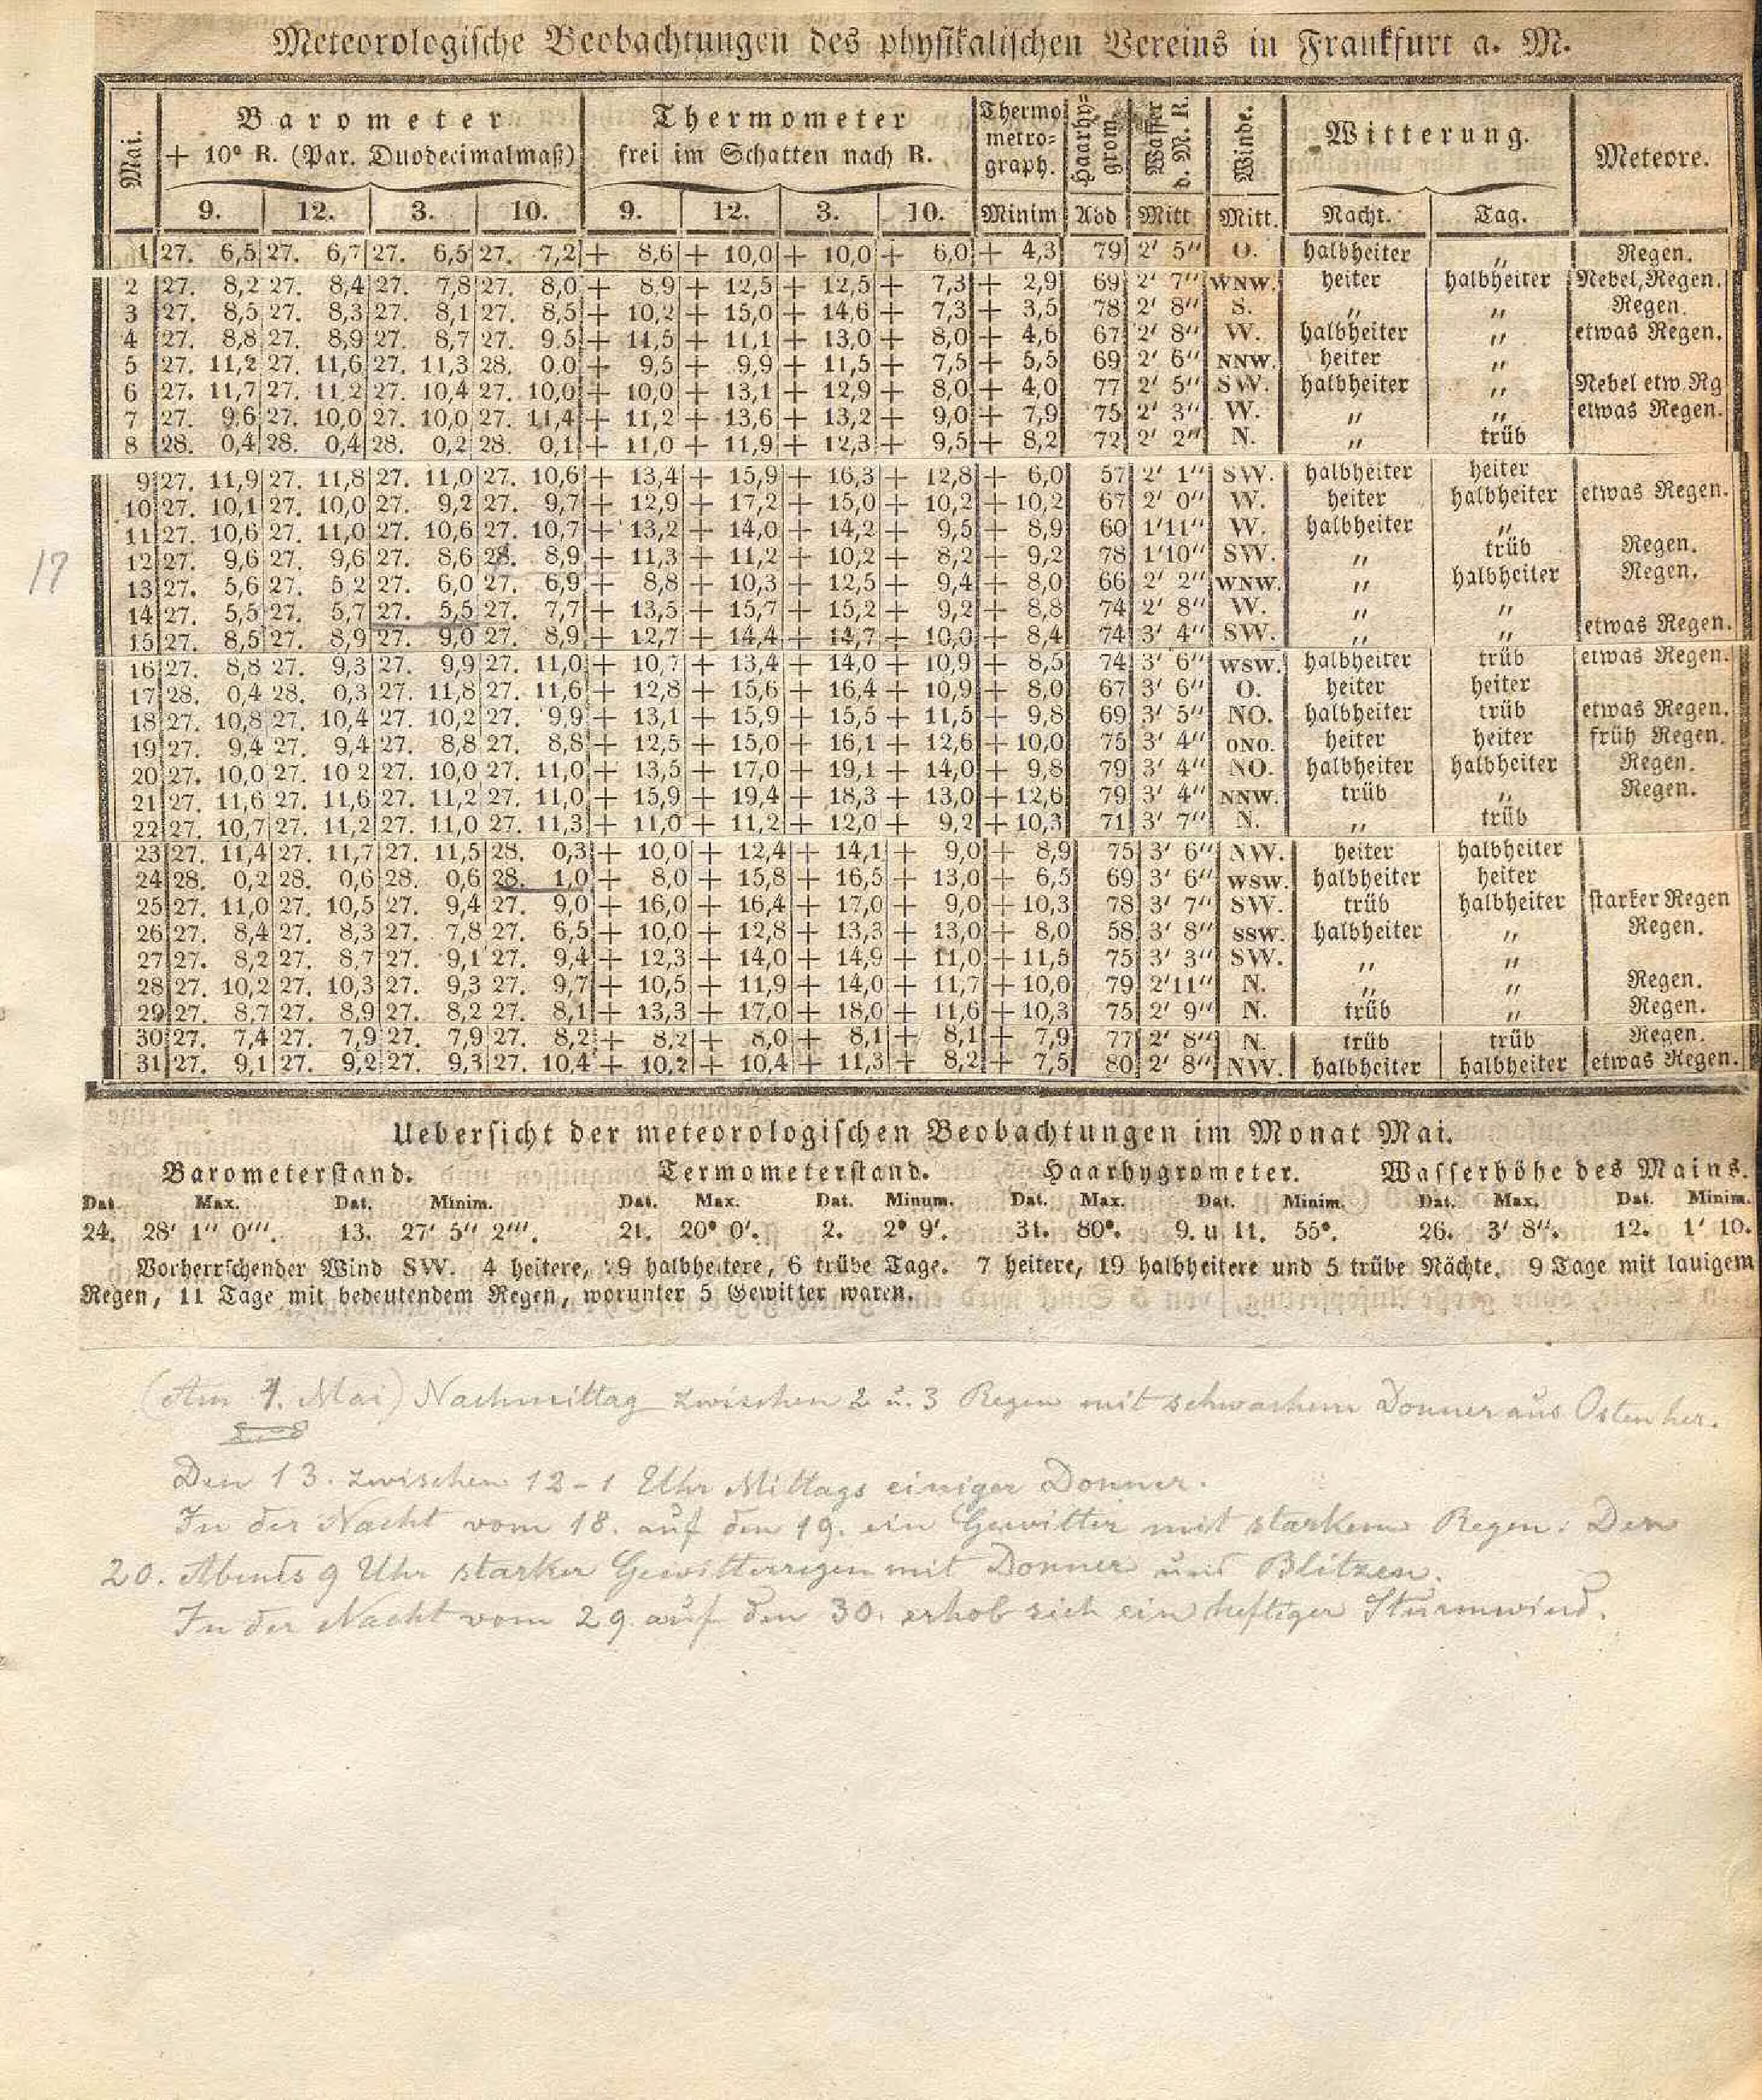 Meteorologische Beobachtungen des physikalischen Vereins in Frankfurt a. M.
Mai. Barometer Thermometer Thermometrograph. Haarhygrom. Wasser d. M. R. Winde. Witterung. Meteore.
+ 10° R. (Par. Duodecimalmaß) frei im Schatten nach R.
9. 12. 3. 10. 9. 12. 3. 10. Minim Abd Mitt Mitt. Nacht. Tag.
1 27. 6,5 27. 6,7 27. 6,5 27. 7,2 + 8,6 + 10,0 + 10,0 + 6,0 + 4,3 79 2' 5" O. halbheiter " Regen.
2 27. 8,2 27. 8,4 27. 7,8 27. 8,0 + 8,9 + 12,5 + 12,5 + 7,3 + 2,9 69 2' 7" WNW. heiter halbheiter Nebel, Regen.
3 27. 8,5 27. 8,3 27. 8,1 27. 8,5 + 10,2 + 15,0 + 14,6 + 7,3 + 3,5 78 2' 8" S. " " Regen.
4 27. 8,8 27. 8,9 27. 8,7 27. 9,5 + 11,5 + 11,1 + 13,0 + 8,0 + 4,6 67 2' 8" W. halbheiter " etwas Regen.
5 27. 11,2 27. 11,6 27. 11,3 28. 0,0 + 9,5 + 9,9 + 11,5 + 7,5 + 5,5 69 2' 6" NNW. heiter "
6 27. 11,7 27. 11,2 27. 10,4 27. 10,0 + 10,0 + 13,1 + 12,9 + 8,0 + 4,0 77 2' 5" SW. halbheiter " Nebel etw. Rg
7 27. 9,6 27. 10,0 27. 10,0 27. 11,4 + 11,2 + 13,6 + 13,2 + 9,0 + 7,9 75 2' 3" W. " " etwas Regen.
8 28. 0,4 28. 0,4 28. 0,2 28. 0,1 + 11,0 + 11,9 + 12,3 + 9,5 + 8,2 72 2' 2" N. " trüb
9 27. 11,9 27. 11,8 27. 11,0 27. 10,6 + 13,4 + 15,9 + 16,3 + 12,8 + 6,0 57 2' 1" SW. halbheiter heiter
10 27. 10,1 27. 10,0 27. 9,2 27. 9,7 + 12,9 + 17,2 + 15,0 + 10,2 + 10,2 67 2' 0" W. heiter halbheiter etwas Regen.
11 27. 10,6 27. 11,0 27. 10,6 27. 10,7 + 13,2 + 14,0 + 14,2 + 9,5 + 8,9 60 1' 11" W. halbheiter "
12 27. 9,6 27. 9,6 27. 8,6 28. 8,9 + 11,3 + 11,2 + 10,2 + 8,2 + 9,2 78 1' 10" SW. " trüb Regen.
17
13 27. 5,6 27. 5 2 27. 6,0 27. 6,9 + 8,8 + 10,3 + 12,5 + 9,4 + 8,0 66 2' 2" WNW. " halbheiter Regen.
14 27. 5,5 27. 5,7 27. 5,5 27. 7,7 + 13,5 + 15,7 + 15,2 + 9,2 + 8,8 74 2' 8" W. " "
15 27. 8,5 27. 8,9 27. 9,0 27. 8,9 + 12,7 + 14,4 + 14,7 + 10,0 + 8,4 74 3' 4" SW. " " etwas Regen.
16 27. 8,8 27. 9,3 27. 9,9 27. 11,0 + 10,7 + 13,4 + 14,0 + 10,9 + 8,5 74 3' 6" WSW. halbheiter trüb etwas Regen.
17 28. 0,4 28. 0,3 27. 11,8 27. 11,6 + 12,8 + 15,6 + 16,4 + 10,9 + 8,0 67 3' 6" O. heiter heiter
18 27. 10,8 27. 10,4 27. 10,2 27. 9,9 + 13,1 + 15,9 + 15,5 + 11,5 + 9,8 69 3' 5" NO. halbheiter trüb etwas Regen.
19 27. 9,4 27. 9,4 27. 8,8 27. 8,8 + 12,5 + 15,0 + 16,1 + 12,6 + 10,0 75 3' 4" ONO. heiter heiter früh Regen.
20 27. 10,0 27. 10 2 27. 10,0 27. 11,0 + 13,5 + 17,0 + 19,1 + 14,0 + 9,8 79 3' 4" NO. halbheiter halbheiter Regen.
21 27. 11,6 27. 11,6 27. 11,2 27. 11,0 + 15,9 + 19,4 + 18,3 + 13,0 + 12,6 79 3' 4" NNW. trüb " Regen.
22 27. 10,7 27. 11,2 27. 11,0 27. 11,3 + 11,0 + 11,2 + 12,0 + 9,2 + 10,3 71 3' 7" N. " trüb
23 27. 11,4 27. 11,7 27. 11,5 28. 0,3 + 10,0 + 12,4 + 14,1 + 9,0 + 8,9 75 3' 6" NW. heiter halbheiter
24 28. 0,2 28. 0,6 28. 0,6 28. 1,0 + 8,0 + 15,8 + 16,5 + 13,0 + 6,5 69 3' 6" WSW. halbheiter heiter
25 27. 11,0 27. 10,5 27. 9,4 27. 9,0 + 16,0 + 16,4 + 17,0 + 9,0 + 10,3 78 3' 7" SW. trüb halbheiter starker Regen
26 27. 8,4 27. 8,3 27. 7,8 27. 6,5 + 10,0 + 12,8 + 13,3 + 13,0 + 8,0 58 3' 8" SSW. halbheiter " Regen.
27 27. 8,2 27. 8,7 27. 9,1 27. 9,4 + 12,3 + 14,0 + 14,9 + 11,0 + 11,5 75 3' 3" SW. " "
28 27. 10,2 27. 10,3 27. 9,3 27. 9,7 + 10,5 + 11,9 + 14,0 + 11,7 + 10,0 79 2' 11" N. " " Regen.
29 27. 8,7 27. 8,9 27. 8,2 27. 8,1 + 13,3 + 17,0 + 18,0 + 11,6 + 10,3 75 2' 9" N. trüb " Regen.
30 27. 7,4 27. 7,9 27. 7,9 27. 8,2 + 8,2 + 8,0 + 8,1 + 8,1 + 7,9 77 2' 8" N. trüb trüb Regen.
31 27. 9,1 27. 9,2 27. 9,3 27. 10,4 + 10,2 + 10,4 + 11,3 + 8,2 + 7,5 80 2' 8" NW. halbheiter halbheiter etwas Regen.
Uebersicht der meteorologischen Beobachtungen im Monat Mai.
Barometerstand. Termometerstand. Haarhygrometer. Wasserhöhe des Mains.
Dat. Max. Dat. Minim. Dat. Max. Dat. Minum. Dat. Max. Dat. Minim. Dat. Max. Dat. Minim.
24. 28' 1" 0"'. 13. 27' 5" 2"'. 21. 20° 0'. 2. 2° 9'. 31. 80°. 9. u. 11. 55°. 26. 3' 8". 12. 1' 10.
Vorherrschender Wind SW. 4 heitere, 19 halbheitere, 6 trübe Tage. 7 heitere, 19 halbheitere und 5 trübe Nächte. 9 Tage mit lauigem
Regen, 11 Tage mit bedeutendem Regen, worunter 5 Gewitter waren.
(Am 4. Mai) Nachmittag zwischen 2 u. 3 Regen mit schwachem Donner aus Osten her.
Den 13. zwischen 12 - 1 Uhr Mittags einiger Donner.
In der Nacht vom 18. auf den 19. ein Gewitter mit starkem Regen: Den
20. Abends 9 Uhr starker Gewitterregen mit Donner und Blitzen.
In der Nacht vom 29. auf den 30. erhob sich ein heftiger Sturmwind.